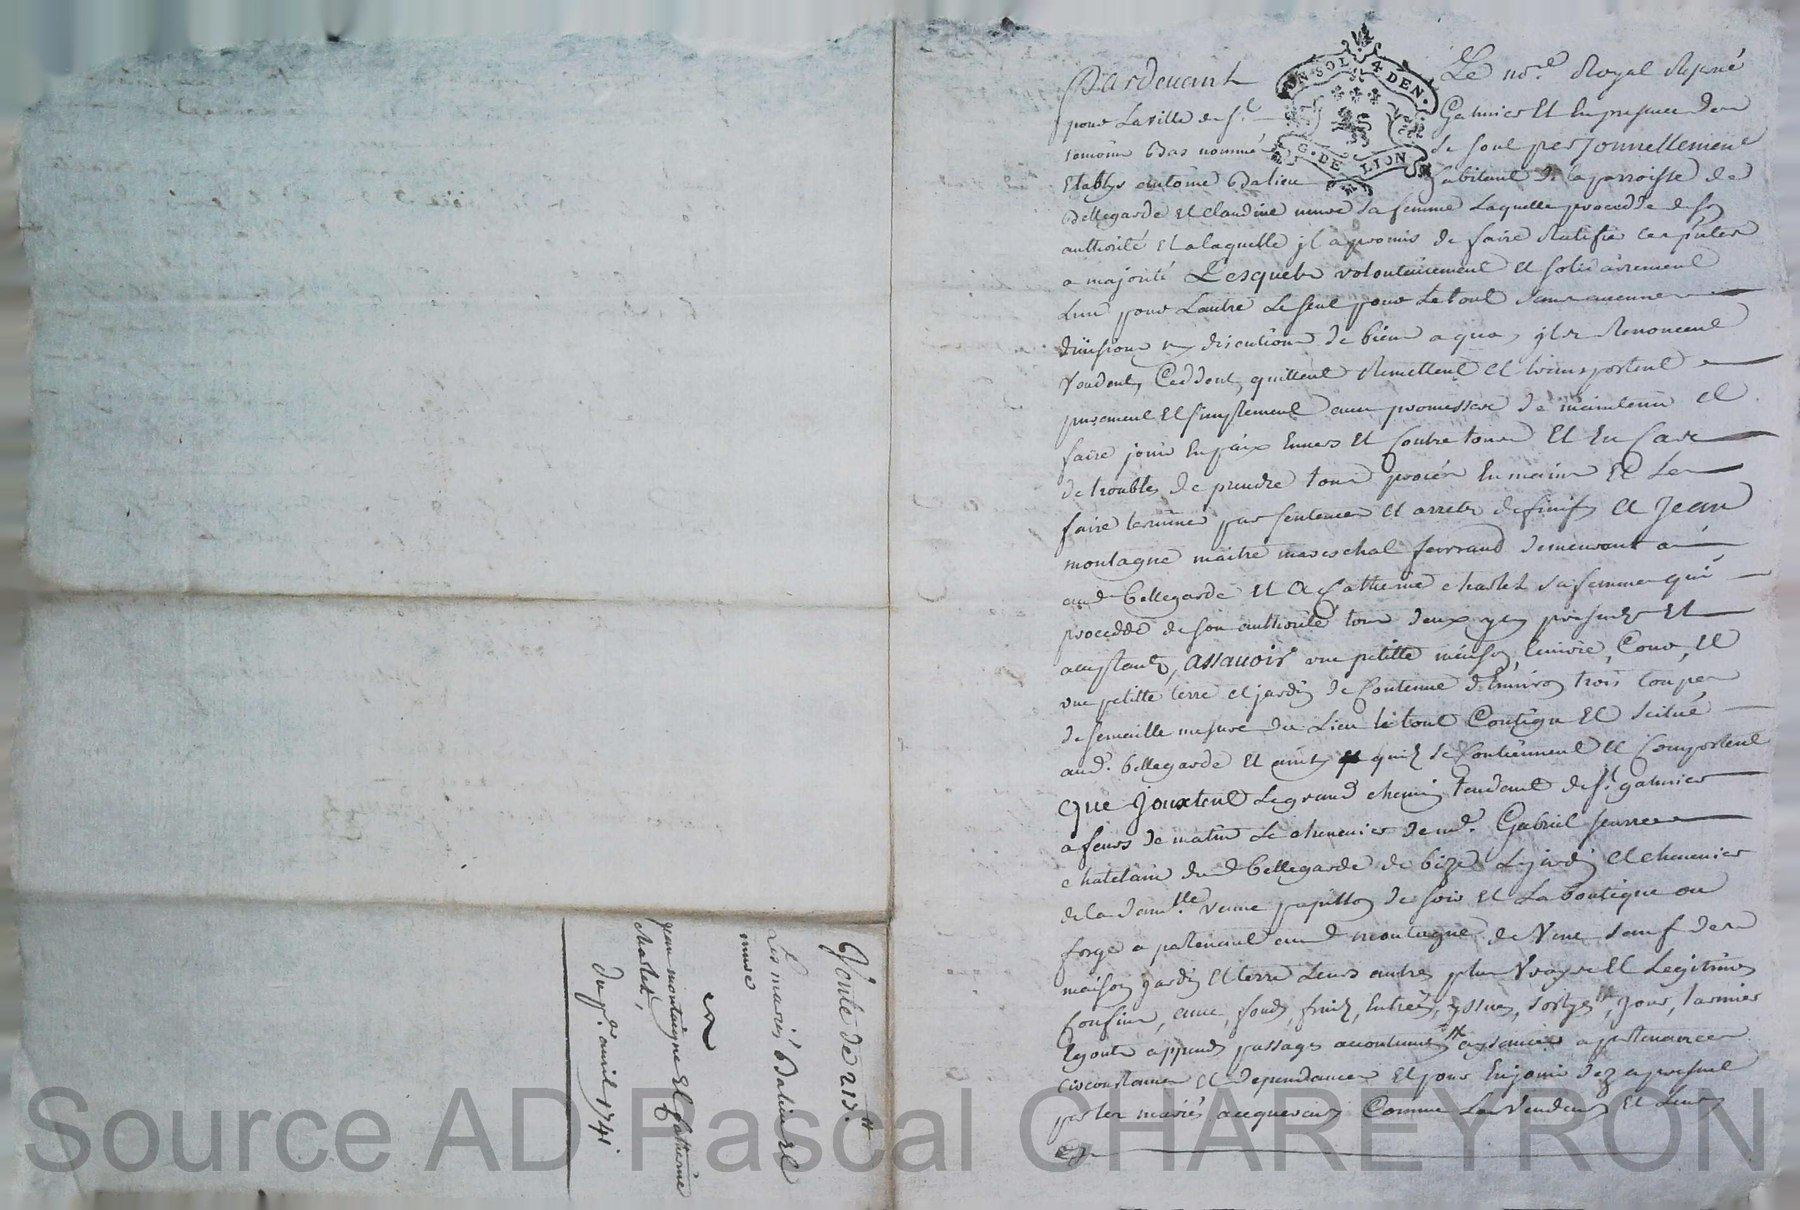 Pardevant Le no.re Royal Reservé
pour La ville de St Galmier Et En presence des
temoins bas nommés se sont personnellement
Etablys antoine Balieu habitant de la parroisse de
Bellegarde et Claudine muve sa femme Laquelle procedde de son
authorité Et a laquelle jl a promis de faire Ratifier ces p̃ntes
a majorité Lesquels volontairement et solidairement
Lun pour Lautre Le seul pour Le tout sans aucune
division ny discution de biens a quoy jls Renoncent
Vendent, Ceddent, quittent Remettent et transportent
purement Et simplement avec promesse de maintenir et
faire jouir En paix Envers Et Contre tous Et En Cas
de troubles de prendre tous procés En mains Et Les
faire terminer par sentences et arrets definifs a Jean
montagne maitre mareschal ferrand demeurant a
aud. bellegarde Et a Catherine charlet sa femme qui
procedde de son authorité tous deux jcy presents Et
acceptants, assavoir une petitte maison, Cour, et
une petitte terre et jardin de Contenue d'Environ trois coupes
de semaille mesure du Lieu le tout Contigu Et scitué
aud. bellegarde Et ainsy quil se Contiennent et Comportent
que Jouxtent Le grand chemin tendant de St galmier
a feurs de matin Le chenevier de md. Gabriel
chatelain dud bellegarde de bize Le jardin et chenevier
de la dam.lle veuve papillon de soir Et La boutique ou
forge apartenant aud montagne de Vent sauf des
maison jardin Et terre Leurs autres plus Vrays Et Legitimes
Confins, avec, fonds, fruits, Entrées, yssues, sortyes, jour, Larmier
Egouts appends passages accoutumés aysances apartenances
circonstances et dependances Et pour En jouir dez a present
par les mariés acquereurs Comme Les Vendeurs Et Leurs
Vente de 215.tt
Les mariés Balieu et
muve
a
jean montaigne Et Catherine
charlet,
Du p.er avril 1741
UN·SOL 4 DEN.
G·DE LION
Source AD Pascal CHAREYRON